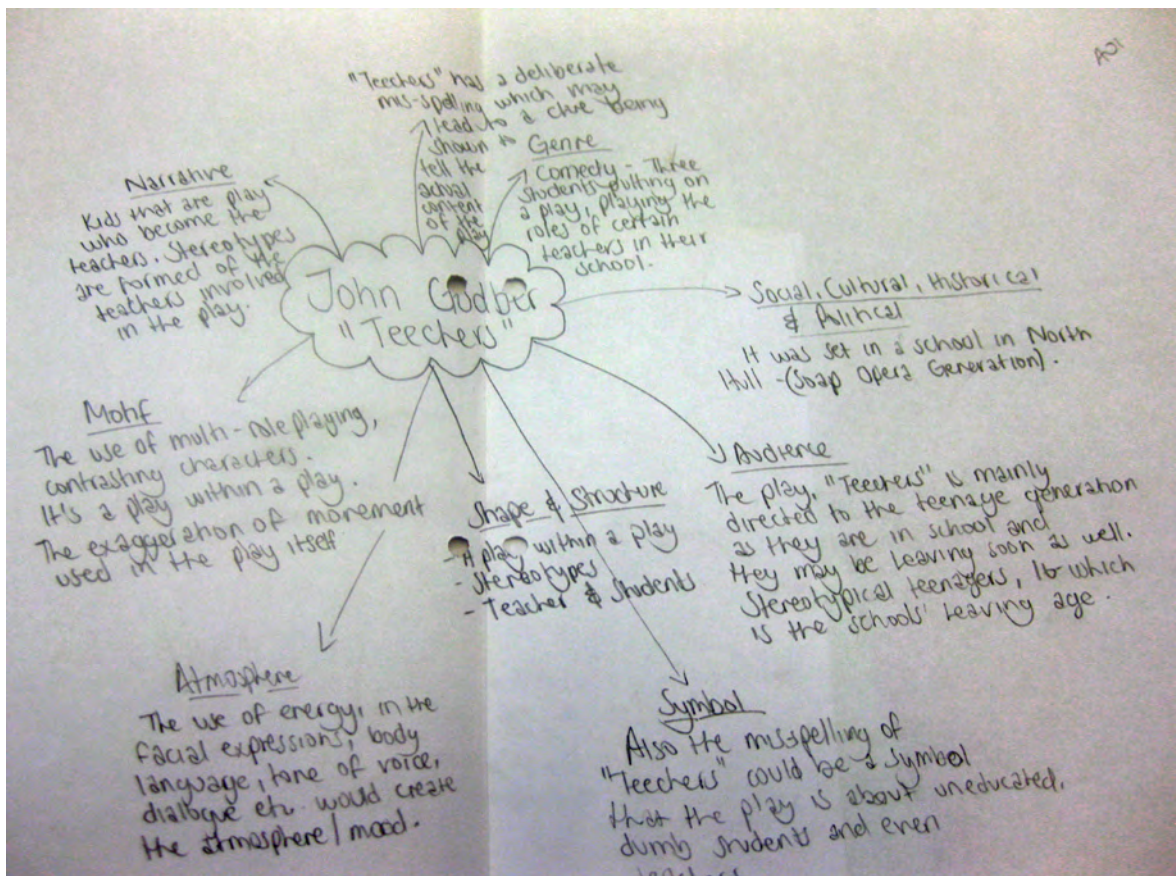 AO1
"Teechers" has a deliberate
mis-spelling which may
lead to a clue being
shown to
tell the
actual
content
of the
play
Genre
Comedy - Three
students putting on
a play, playing the
roles of certain
teachers in their
school.
Narrative
Kids that are play
who become the
teachers. Stereotypes
are formed of the
teachers involved
in the play.
John Godber
"Teechers"
Social, Cultural, Historical
& Political
It was set in a school in North
Hull - (Soap Opera Generation).
Motif
The use of multi-roleplaying,
contrasting characters.
It's a play within a play.
The exaggeration of movement
used in the play itself
Shape & Structure
- A play within a play
- Stereotypes
- Teacher & Students
Audience
The play, "Teechers" is mainly
directed to the teenage generation
as they are in school and
they may be leaving soon as well.
Stereotypical teenagers, 16 which
is the schools' leaving age.
Atmosphere
The use of energy, in the
facial expressions, body
language, tone of voice,
dialogue etc. would create
the atmosphere/mood.
Symbol
Also the misspelling of
"Teechers" could be a symbol
that the play is about uneducated,
dumb students and even